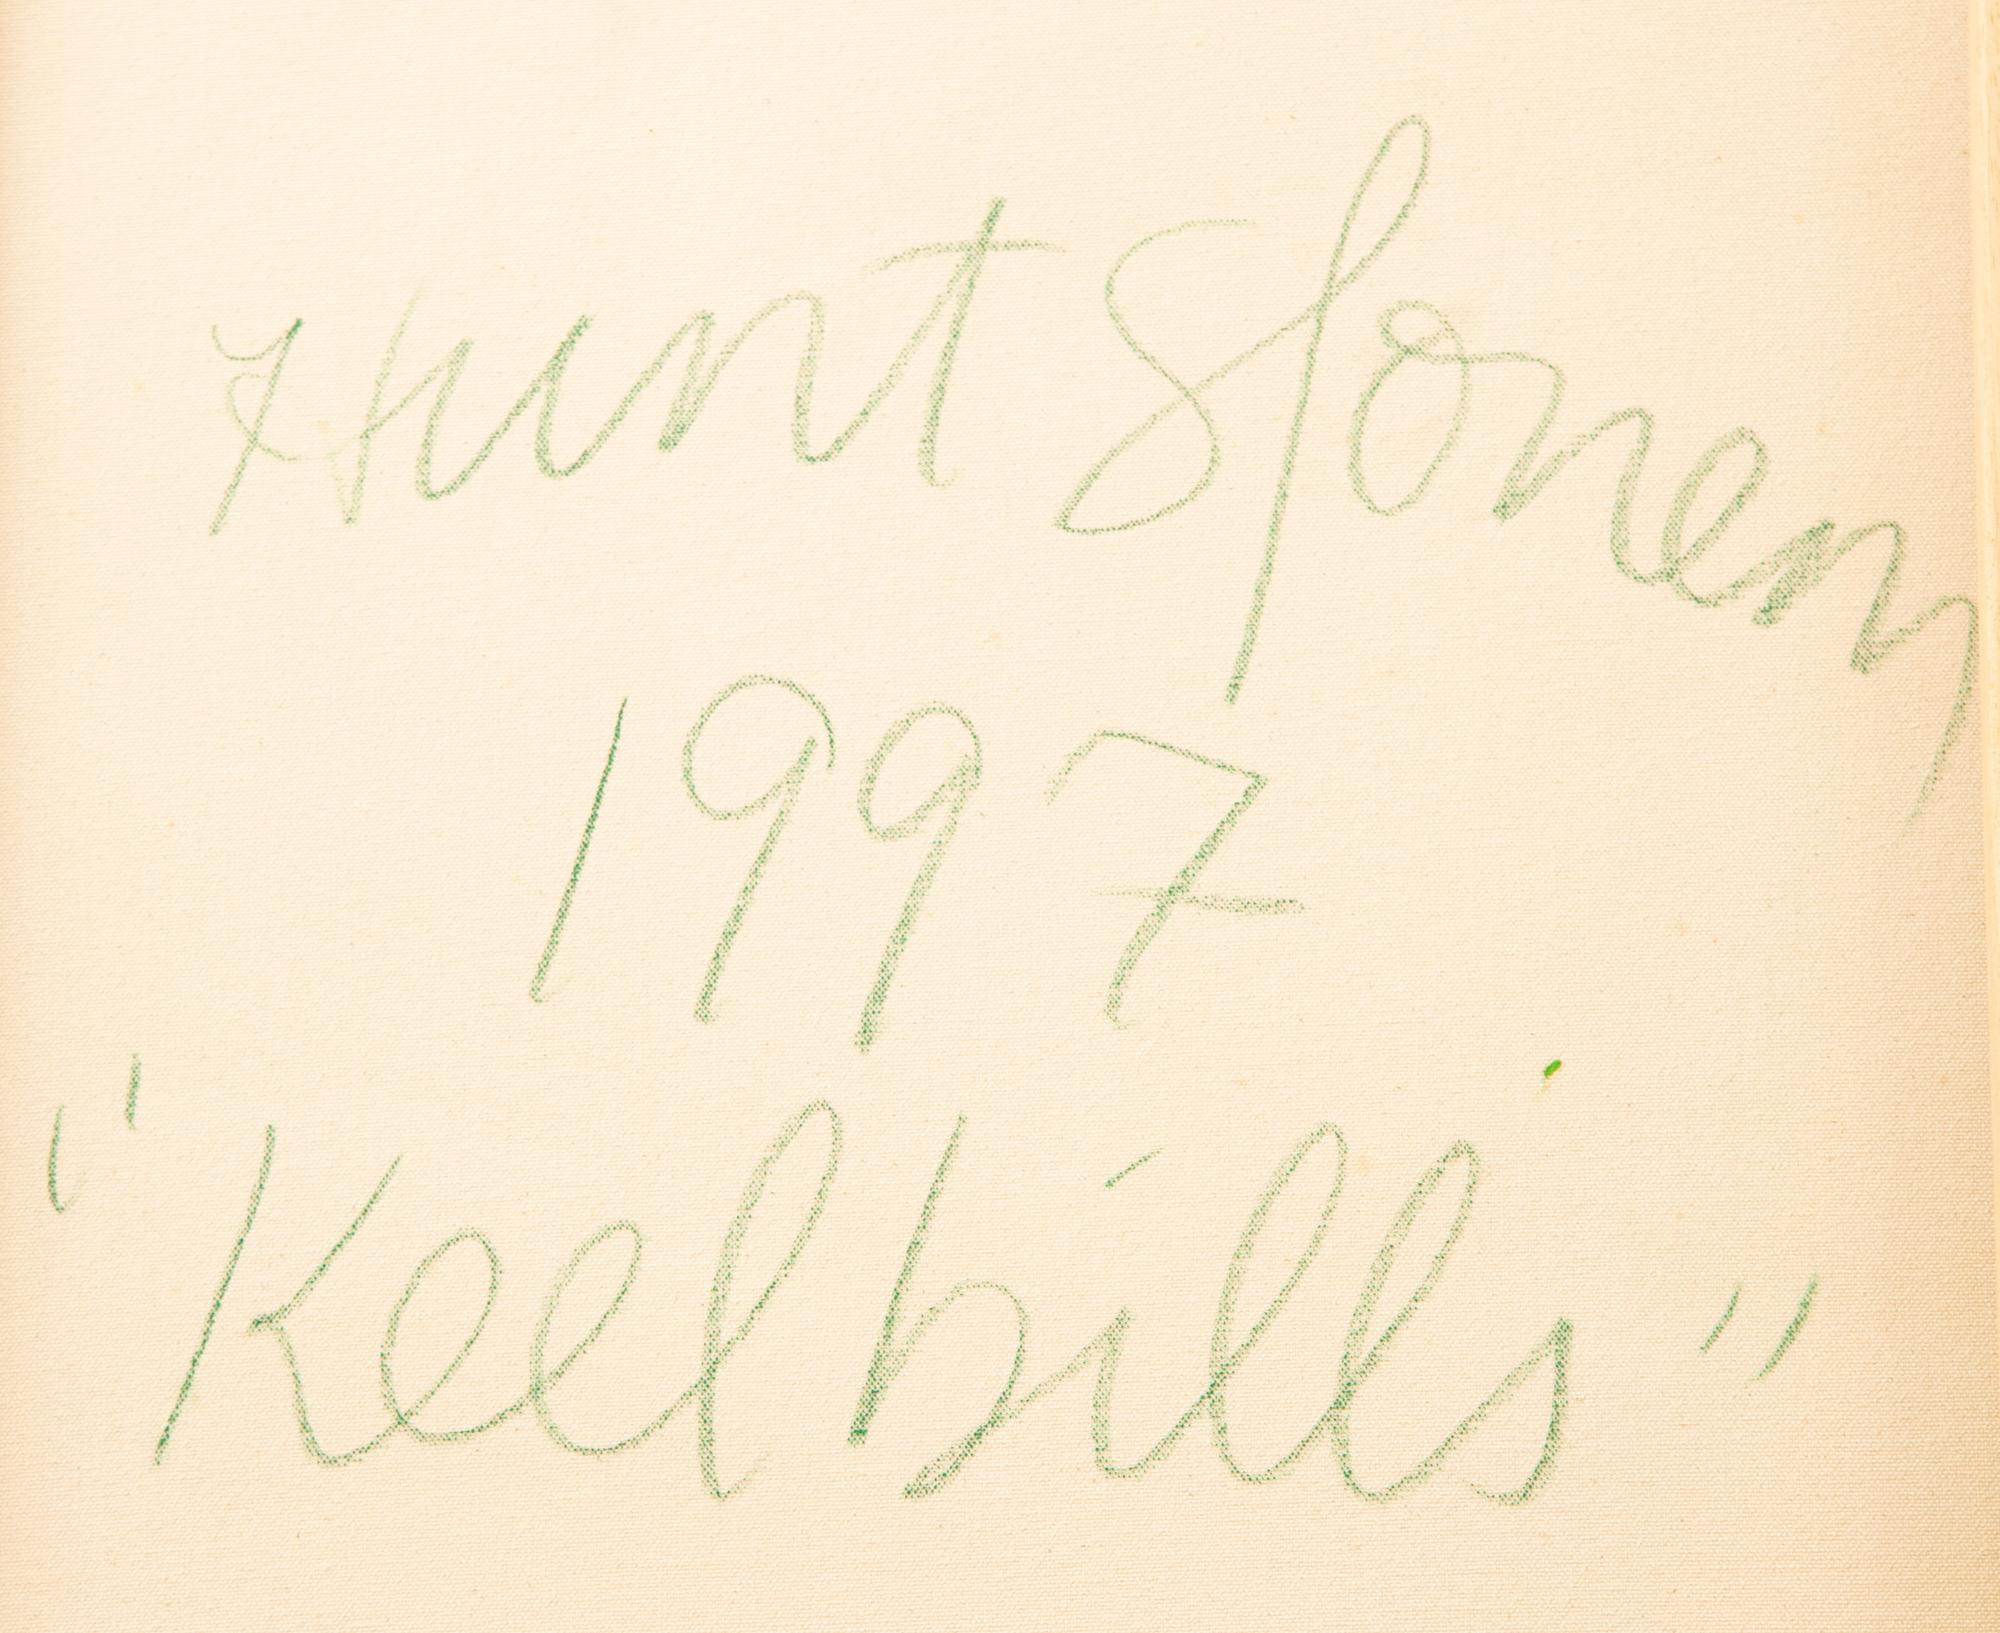 Hunt Slonem
1997
"Keel bills"